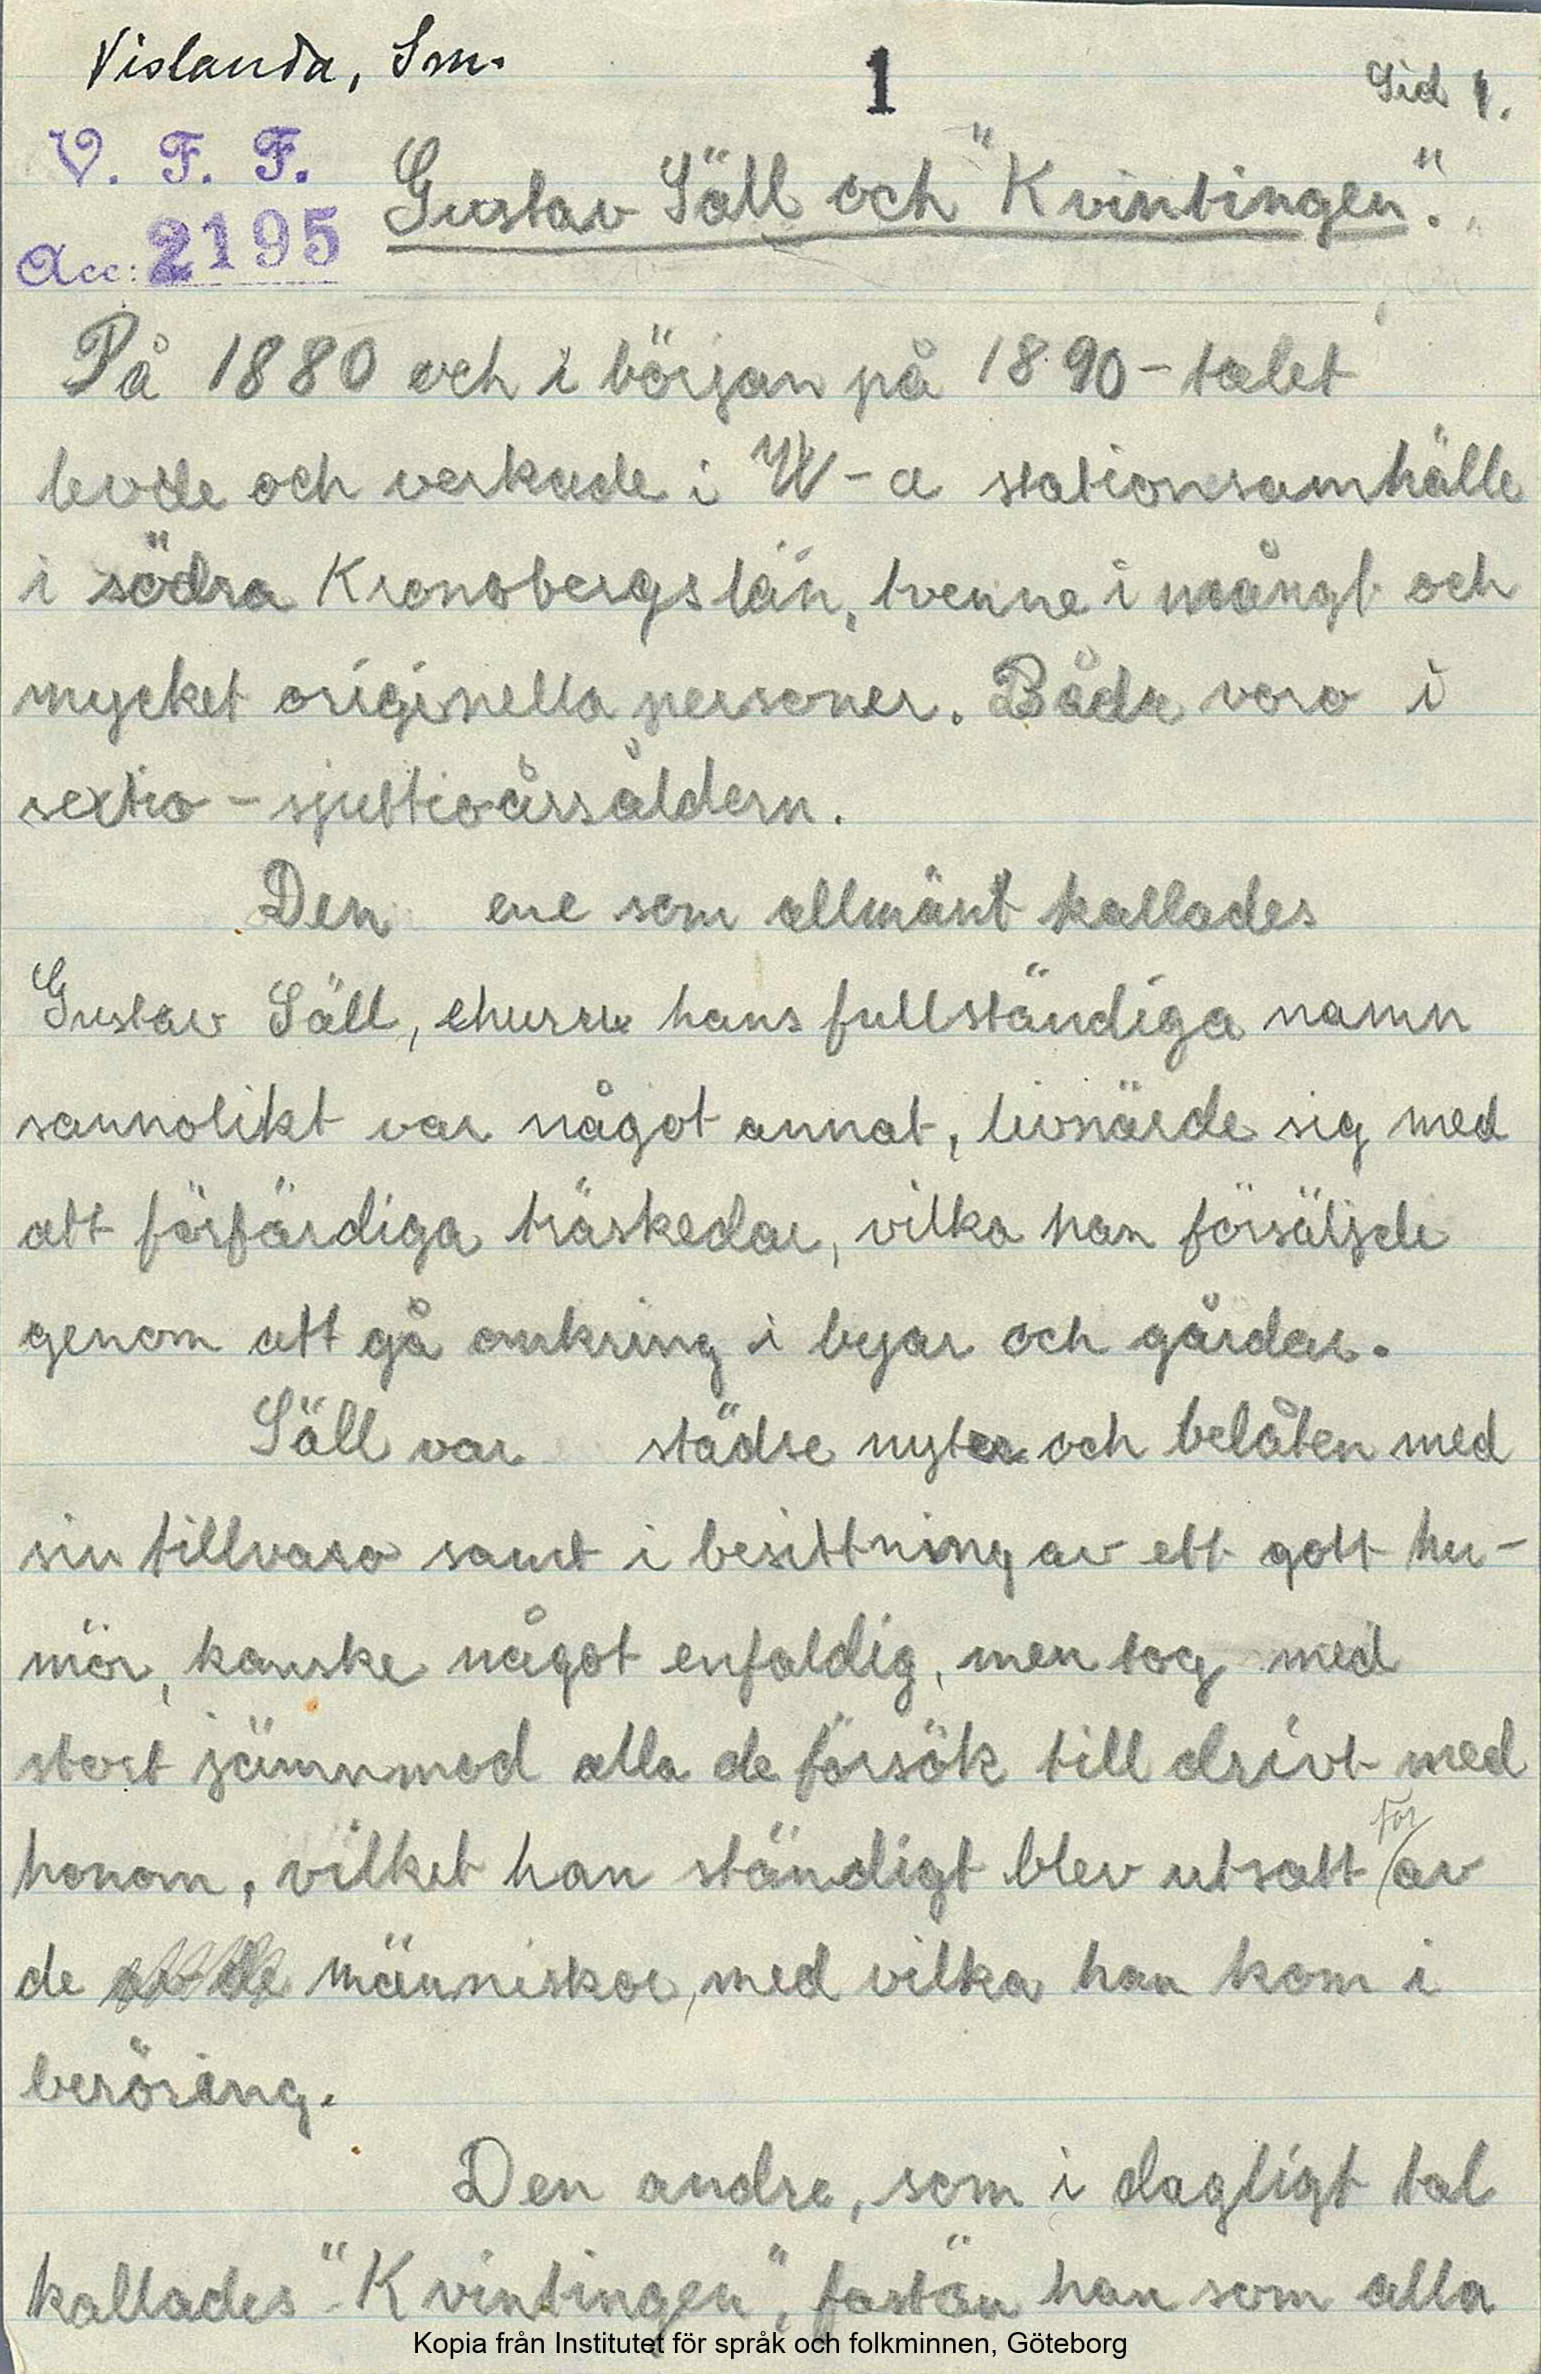 Vislanda, Sm.
1
Sid 1.
V. F. F.
Acc: 2195
Gustav Säll och "Kvintingen".
På 1880 och i början på 1890-talet
levde och verkade i W-a stationssamhälle
i södra Kronobergs län, tvenne i mångt och
mycket originella personer. Båda voro i
sextio-sjuttioårsåldern.
Den ene som allmänt kallades
Gustav Säll, ehuru hans fullständiga namn
sannolikt var något annat, livnärde sig med
att förfärdiga träskedar, vilka han försäljde
genom att gå omkring i byar och gårdar.
Säll var städse nyter och belåten med
sin tillvaro samt i besittning av ett gott hu-
mör, kanske något enfaldig, men tog med
stort jämnmod alla de försök till drivt med
honom, vilket han ständigt blev utsatt för av
de av de människor, med vilka han kom i
beröring.
Den andre, som i dagligt tal
kallades "Kvintingen", fastän han som alla
Kopia från Institutet för språk och folkminnen, Göteborg